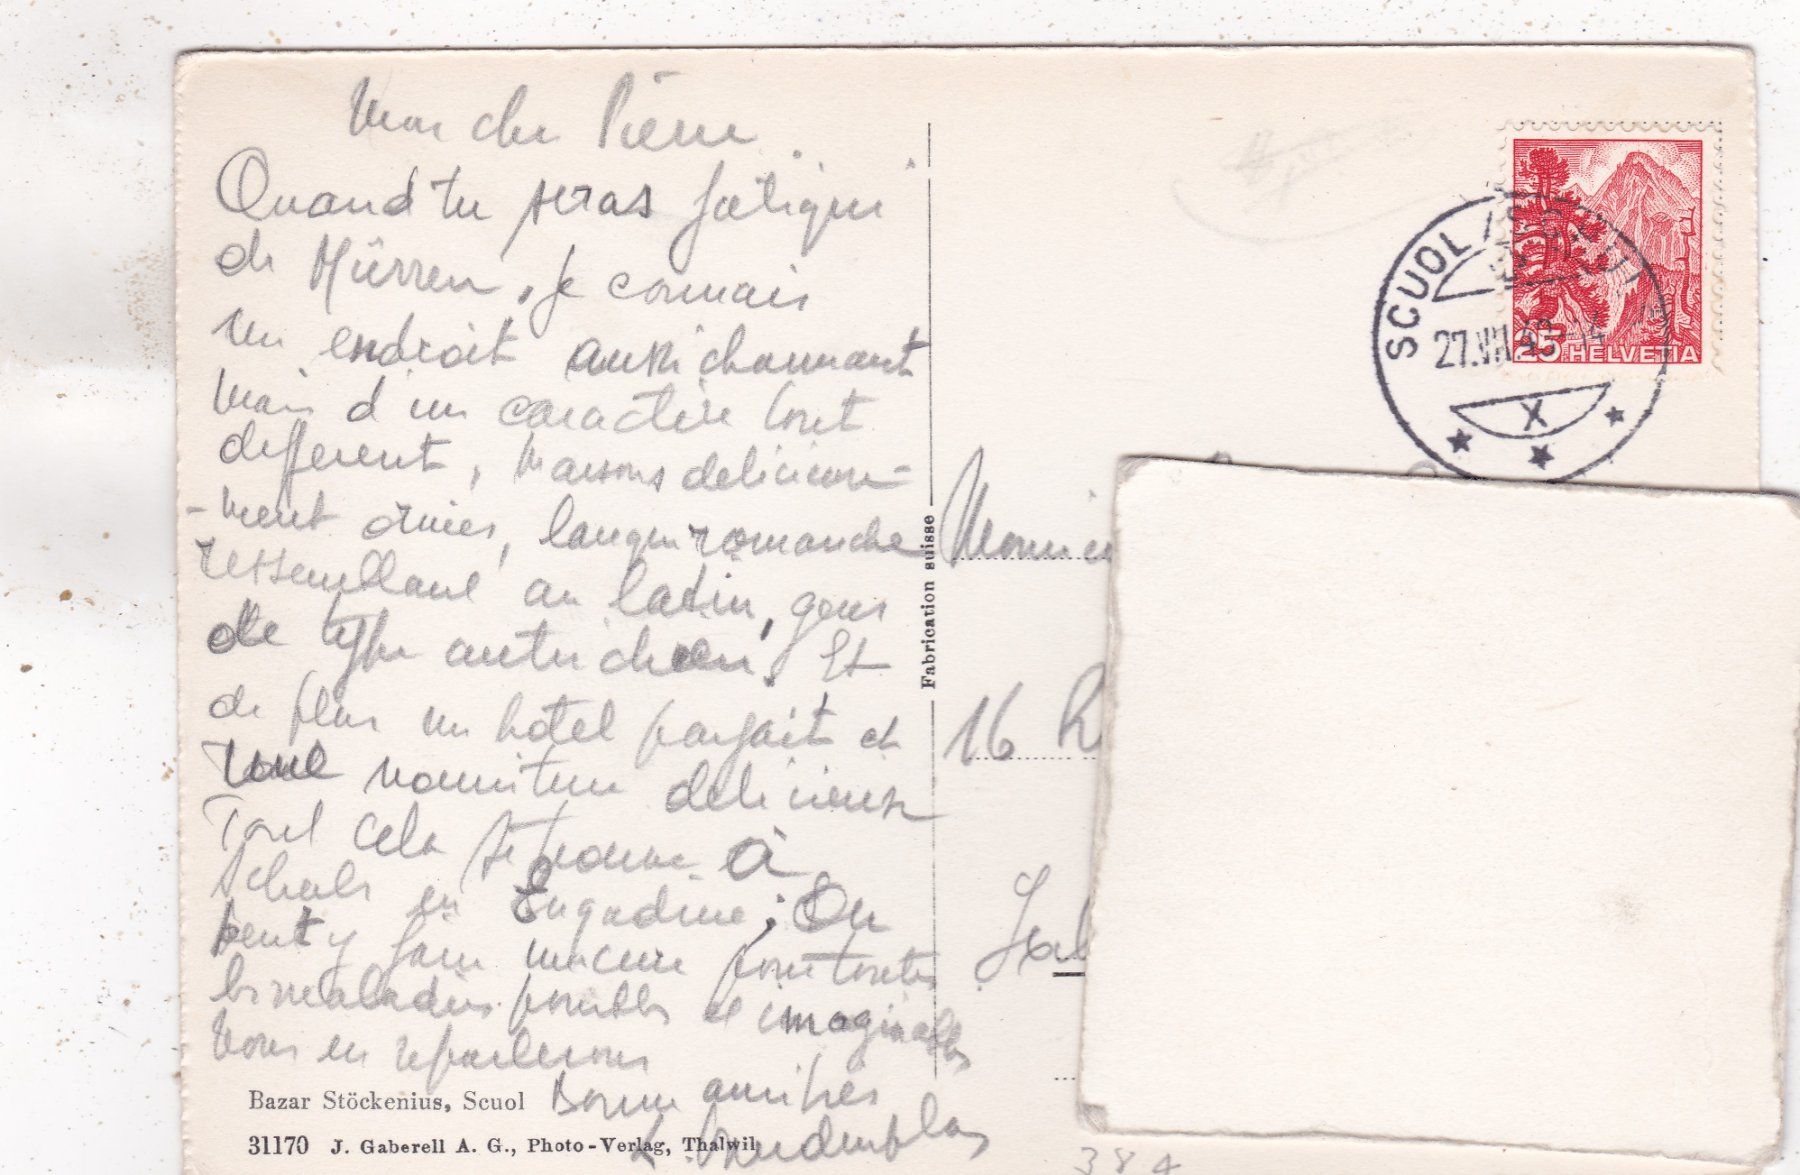 Mon cher Pierre
Quand tu seras fatigué
de Mürren, je connais
un endroit aussi charmant
mais d'un caractère tout
différent, maisons délicieuse-
-ment ornées, langue romanche
ressemblant au latin, gens
de type autrichien. Et
de plus un hotel parfait et
une nourriture délicieuse
Tout cela se trouve à
Schuls en Engadine; On
peut y faire une cure pour toutes
les maladies possibles et imaginables
Nous en reparlerons
Bonnes amitiés
Bazar Stöckenius, Scuol
31170 J. Gaberell A. G., Photo-Verlag, Thalwil
Fabrication suisse
SCUOL
27.VII.
X
25 HELVETIA
16
384